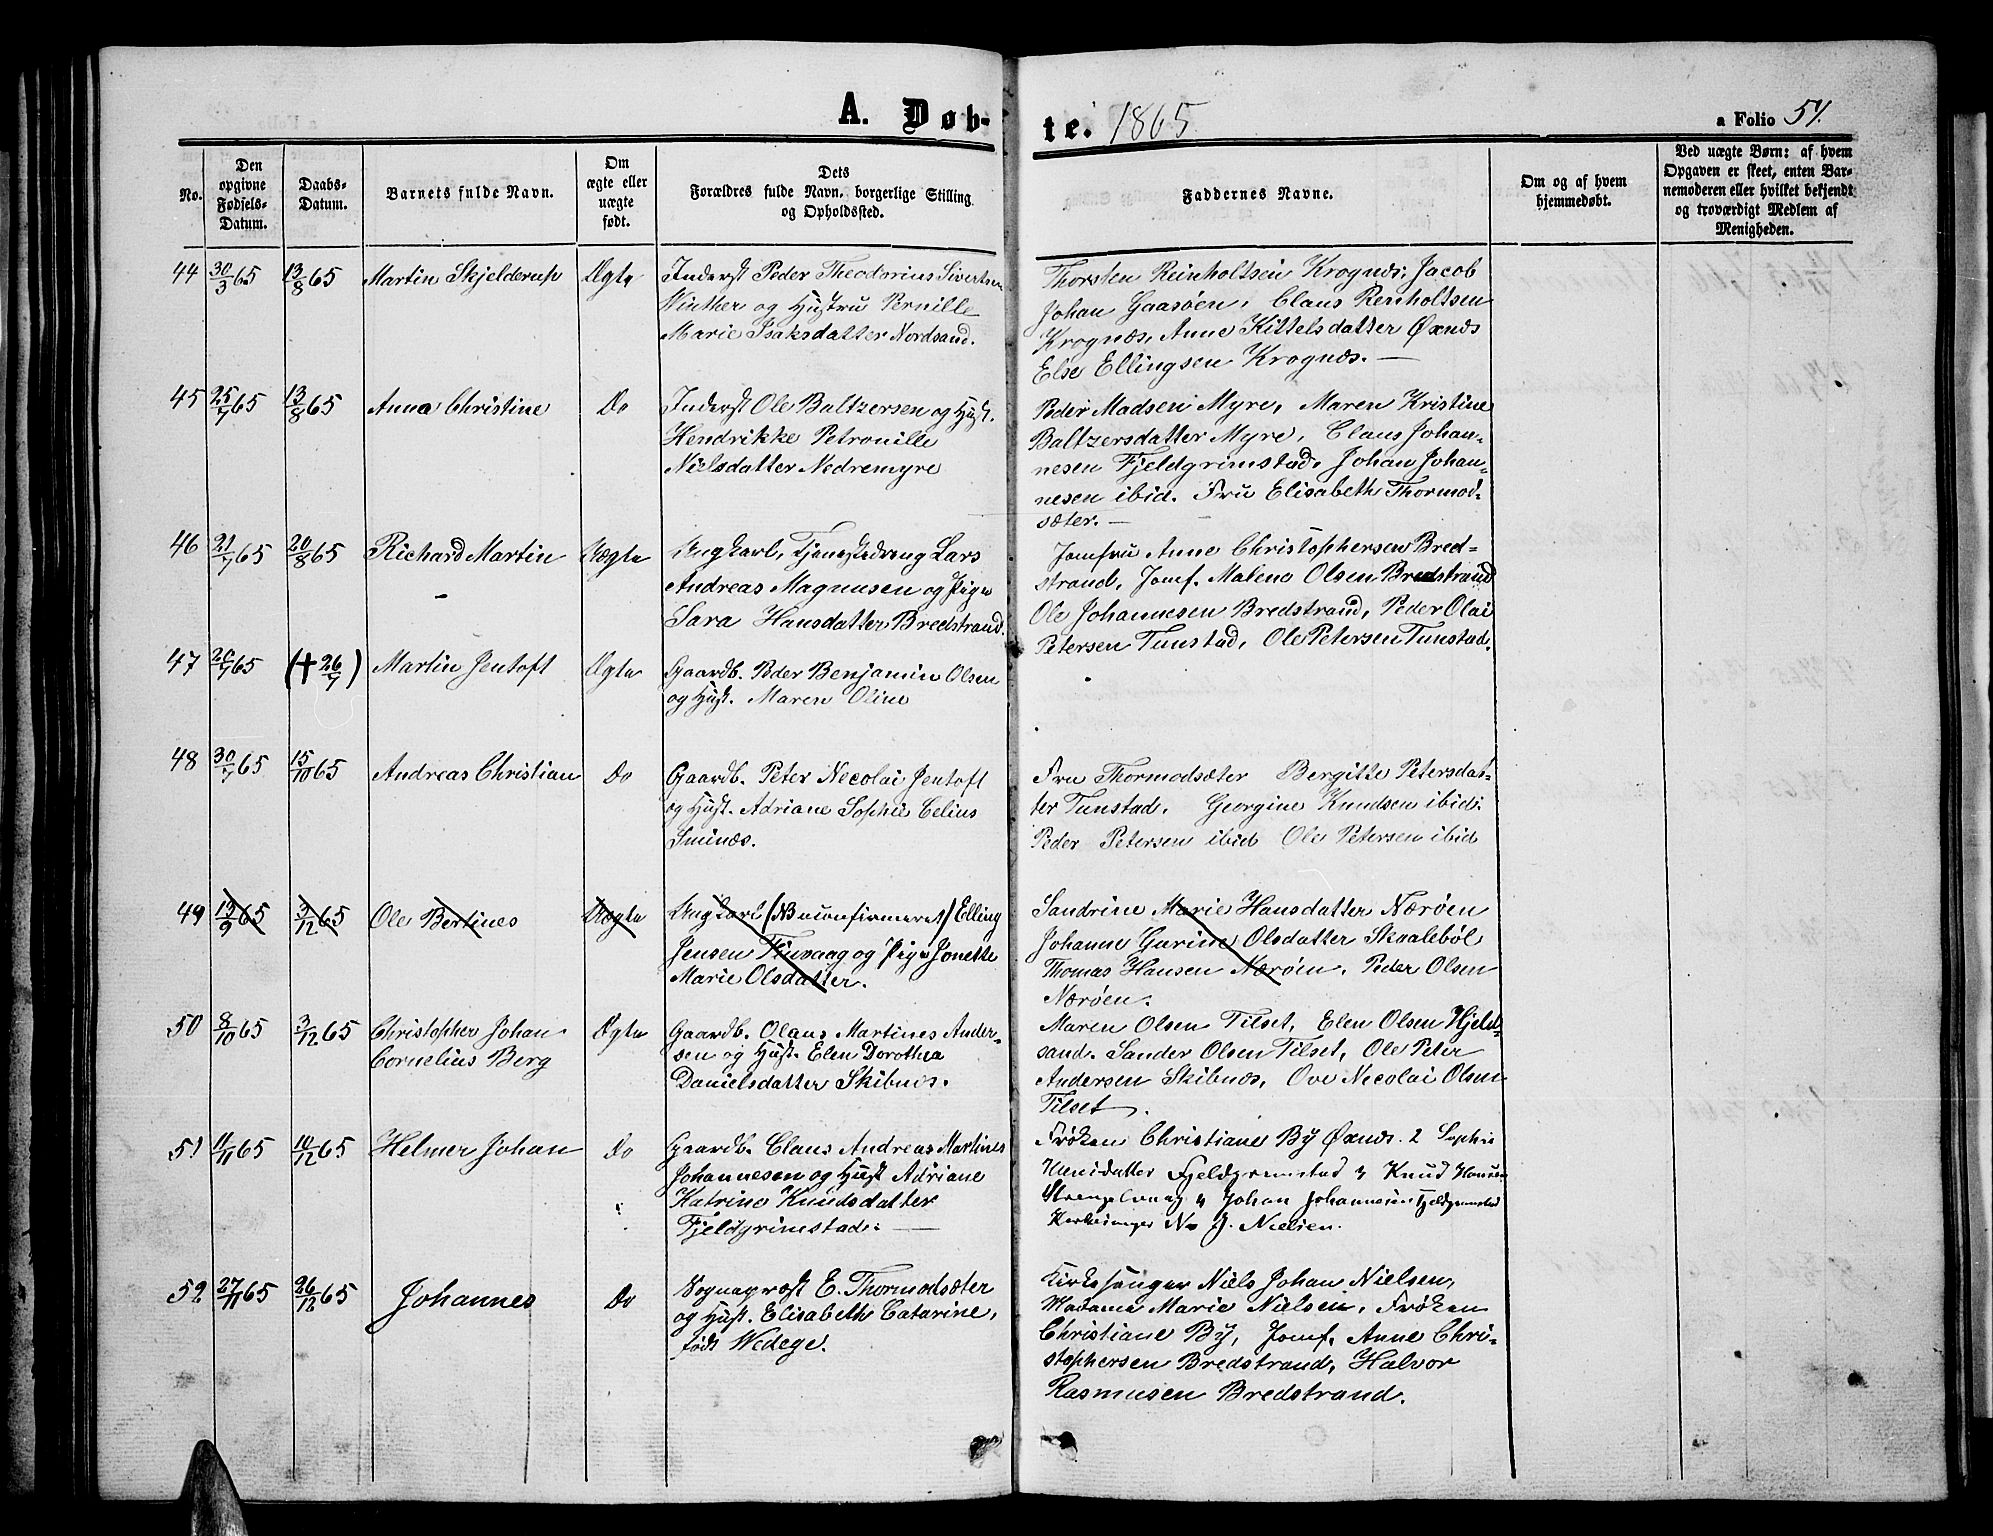 A. Døb-
te. 1865
a Folio 51.
No.
Den
opgivne
Fødsels-
Datum.
Daabs-
Datum.
Barnets fulde Navn.
Om
ægte eller
uægte
født.
Dets
Forældres fulde Navn, borgerlige Stilling
og Opholdssted.
Faddernes Navne.
Om og af hvem
hjemmedøbt.
Ved uægte Børn: af hvem
Opgaven er skeet, enten Bar-
nemoderen eller hvilket bekjendt
og troværdigt Medlem af
Menigheden.
44 30/3 65 13/8 65 Martin Skjelderup Ægte
Inderst Peder Theodorius Sivertsen
Winther og Hustru Pernille
Marie Isaksdatter Nordsand.
Thorsten Reinholtsen Krognæs, Jacob
Johan Gaasøen, Claus Renholtsen
Krognæs, Anne Kittelsdatter Øxnæs
Else Ellingsen Krognæs. —
45 25/7 65 13/8 65 Anna Christine Do
Inderst Ole Baltzersen og Hust.
Hendrikke Petronille
Nielsdatter Nedremyre
Peder Madsen Myre, Maren Kristine
Baltzersdatter Myre, Claus Johan-
nesen Fjeldgrimstad, Johan Johan-
nesen ibid. Fru Elisabeth Thormod-
sæter. —
46 21/7 65 20/8 65 Richard Martin Uægte
Ungkarl, Tjenestedreng Lars
Andreas Magnusen og Pige
Sara Hansdatter Bredstrand.
Jomfru Anne Christophersen Bred-
strand, Jomf. Malene Olsen Bredstrand
Ole Johannesen Bredstrand, Peder Olai
Petersen Tunstad, Ole Petersen Tunstad.
47 20/7 65 († 26/7) Martin Jentoft Ægte
Gaardb. Peder Benjamin Olsen
og Hust. Maren Oline
48 30/7 65 15/10 65 Andreas Christian Do
Gaardb. Peter Necolai Jentoft
og Hust. Adriane Sophie Celius
Sminæs.
Fru Thormodsæter Bergitte Petersdat-
ter Tunstad. Georgine Knudsen ibid.
Peder Petersen ibid Ole Petersen ibid
49 13/9 65 3/12 65 Ole Bertines Uægte
Ungkarl (NB uconfirmeret) Elling
Jensen Tinvaag og Pige Jonette
Marie Olsdatter.
Sandrine Marie Hansdatter Nærøen
Johanne Gurine Olsdatter Skaalebøl
Thomas Hansen Nærøen, Peder Olsen
Nærøen.
50 8/10 65 3/12 65 Christopher Johan
Cornelius Berg Ægte
Gaardb. Olaus Martines Ander-
sen og Hust. Elen Dorothea
Danielsdatter Skibnæs.
Maren Olsen Tilset, Elen Olsen Hjeld-
sand. Sander Olsen Tilset, Ole Peter
Andersen Skibnæs, Ove Necolai Olsen
Tilset.
51 11/11 65 10/12 65 Helmer Johan Do
Gaardb. Claus Andreas Martines
Johannesen og Hust Adriane
Katrine Knudsdatter
Fjeldgrimstad. —
Frøken Christiane By Øxnæs. 2 Sophie
Fjeldgrimstad 3 Knud Hansen
Strengelvaag 4 Johan Johannesen Fjeldgrimstad
Kirkesanger N. J. Nielsen.
52 27/11 65 26/12 65 Johannes Do
Sognaprest E. Thormodsæter
og Hust. Elisabeth Catarine,
født Wedege.
Kirkesanger Niels Johan Nielsen,
Madame Marie Nielsen, Frøken
Christiane By, Jomf. Anne Chri-
stophersen Bredstrand, Halvor
Rasmusen Bredstrand.